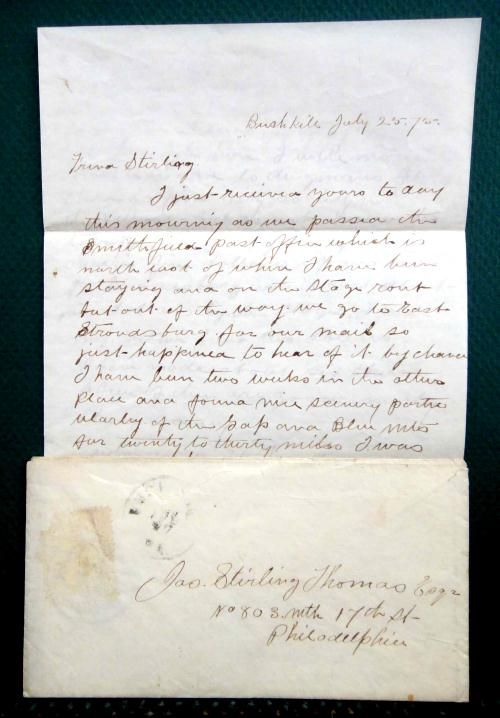 Bushkill July 25. 75.
Friend Stirling.
I just received yours to day
this mourning as we passed the
Smithfield Post office which is
north east of where I have been
staying and on the stage rout
but out of the way. we go to East
Stroudsburg for our mail so
just happened to hear of it by chance
I have been two weeks in the other
place and found nice scenery partic
ularly of the Gap and Blue Mts
for twenty to thirty miles I was
Jas. Stirling Thomas Esqr
No 803. nth 17th St
Philadelphia